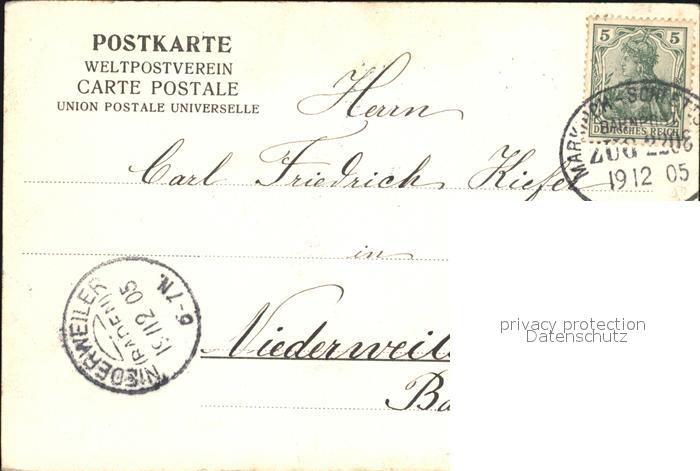 POSTKARTE
WELTPOSTVEREIN
CARTE POSTALE
UNION POSTALE UNIVERSELLE
5 5
DEUTSCHES REICH
BAHNPOST
ZUG 2202
19 12 05
Herrn
Carl Friedrich Kiefer
in
Niederweil
Ba
NIEDERWEILER
(BADEN)
19/12 05
6-7N.
privacy protection
Datenschutz